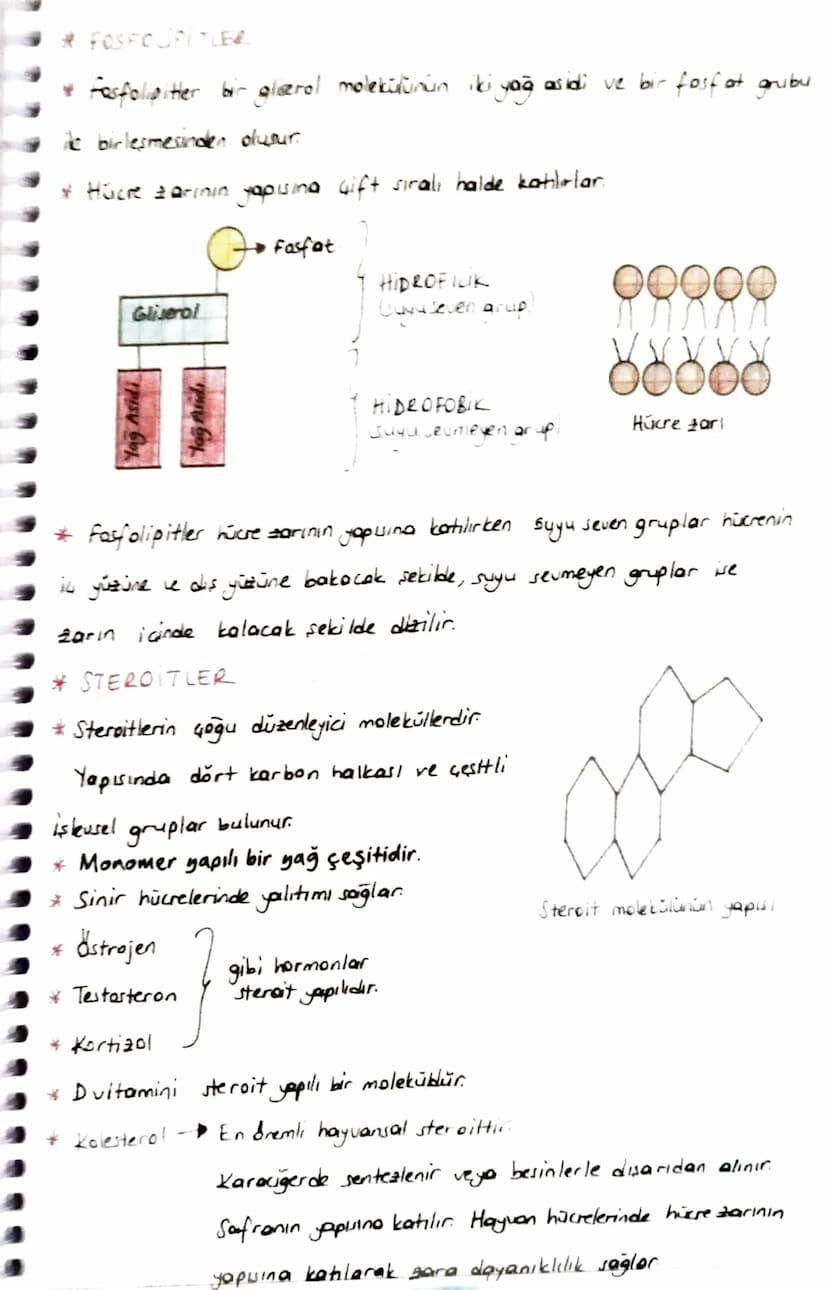 * FOSFOLİPİTLER
* Fosfolipitler bir gliserol molekülünün iki yağ asidi ve bir fosfat grubu
ile birleşmesinden oluşur.
* Hücre zarının yapısına çift sıralı halde katılırlar.
Fosfat
Gliserol
Yağ Asidi
Yağ Asidi
HİDROFİLİK
(suyu seven grup)
HİDROFOBİK
(suyu sevmeyen grup)
Hücre zarı
* Fosfolipitler hücre zarının yapısına katılırken suyu seven gruplar hücrenin
iç yüzüne ve dış yüzüne bakacak şekilde, suyu sevmeyen gruplar ise
zarın içinde kalacak şekilde dizilir.
* STEROİTLER
* Steroitlerin çoğu düzenleyici moleküllerdir.
Yapısında dört karbon halkası ve çeşitli
işlevsel gruplar bulunur.
* Monomer yapılı bir yağ çeşitidir.
* Sinir hücrelerinde yalıtımı sağlar.
Steroit molekülünün yapısı
* Östrojen
* Testosteron
* Kortizol
gibi hormonlar
steroit yapılıdır.
* D vitamini steroit yapılı bir moleküldür.
* Kolesterol → En önemli hayvansal steroittir.
Karaciğerde sentezlenir veya besinlerle dışarıdan alınır.
Safranın yapısına katılır. Hayvan hücrelerinde hücre zarının
yapısına katılarak zara dayanıklılık sağlar